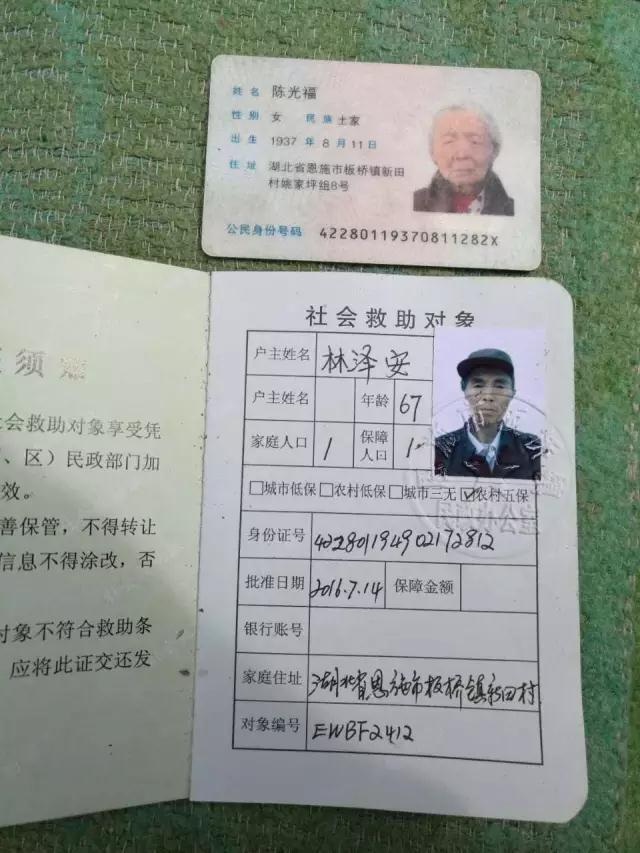 姓名 陈光福
性别 女 民族 土家
出生 1937 年 8 月 11 日
住址 湖北省恩施市板桥镇新田
村姚家坪组8号
公民身份号码 42280119370811282X
须
会救助对象享受凭
、区）民政部门加
效。
善保管，不得转让
信息不得涂改，否
对象不符合救助条
应将此证交还发
社会救助对象
户主姓名 林泽安
户主姓名 年龄 67
家庭人口 1 保障人口 1
□城市低保 □农村低保 □城市三无 ☑农村五保
身份证号 422801194902172812
批准日期 2016.7.14 保障金额
银行账号
家庭住址 湖北省恩施市板桥镇新田村
对象编号 EWBF2412